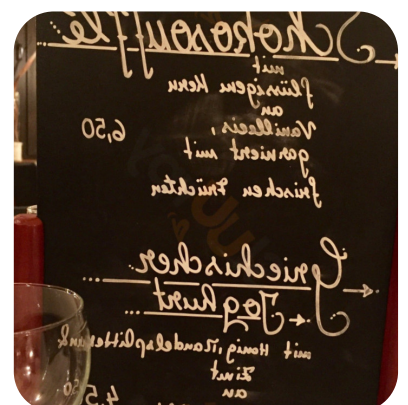 Schokosoufflé
mit
flüssigem Kern
an
Vanilleeis,
garniert mit 6,50
frischen Früchten
Griechischer
Joghurt
mit Honig, Mandelsplittern &
Zimt
an
4,50